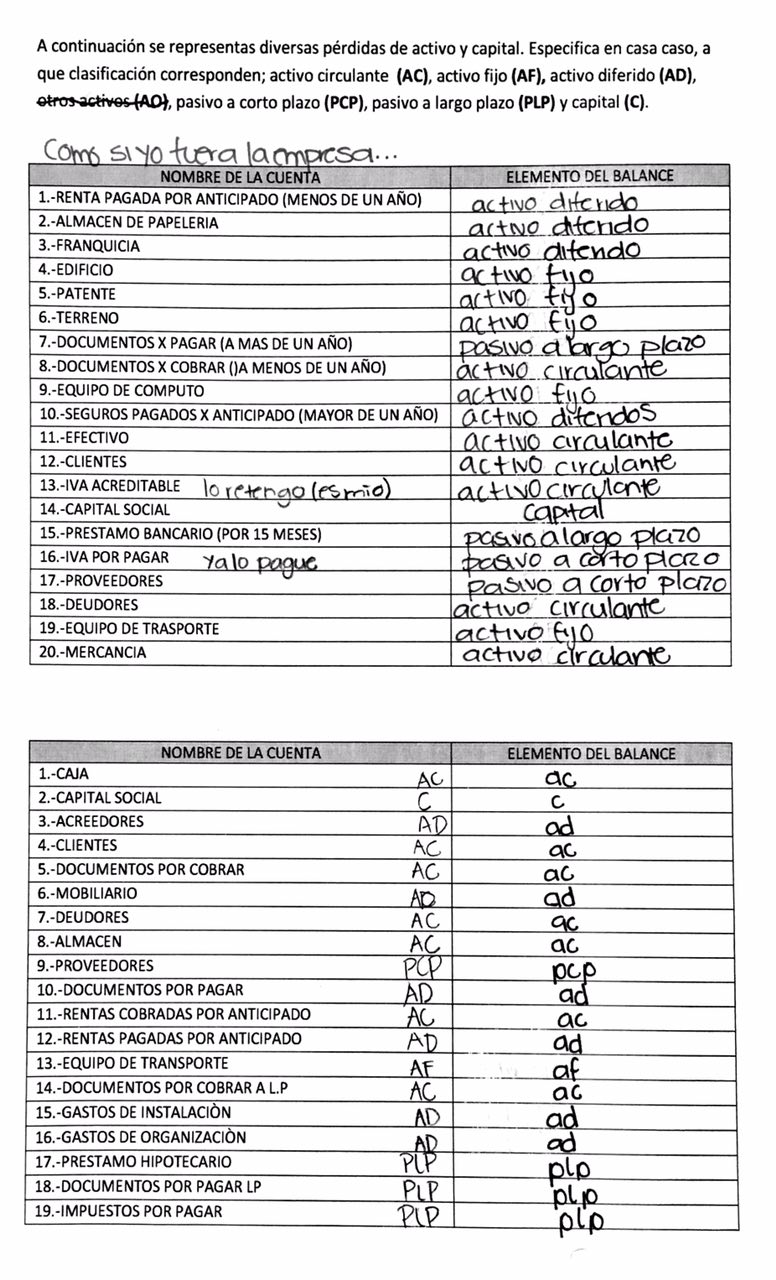 A continuación se representas diversas pérdidas de activo y capital. Especifica en casa caso, a
que clasificación corresponden; activo circulante (AC), activo fijo (AF), activo diferido (AD),
otros activos (AO), pasivo a corto plazo (PCP), pasivo a largo plazo (PLP) y capital (C).
Como si yo fuera la empresa...
NOMBRE DE LA CUENTA ELEMENTO DEL BALANCE
1.-RENTA PAGADA POR ANTICIPADO (MENOS DE UN AÑO) activo diferido
2.-ALMACEN DE PAPELERIA activo diferido
3.-FRANQUICIA activo diferido
4.-EDIFICIO activo fijo
5.-PATENTE activo fijo
6.-TERRENO activo fijo
7.-DOCUMENTOS X PAGAR (A MAS DE UN AÑO) pasivo a largo plazo
8.-DOCUMENTOS X COBRAR ()A MENOS DE UN AÑO) activo circulante
9.-EQUIPO DE COMPUTO activo fijo
10.-SEGUROS PAGADOS X ANTICIPADO (MAYOR DE UN AÑO) activo diferidos
11.-EFECTIVO activo circulante
12.-CLIENTES activo circulante
13.-IVA ACREDITABLE lo retengo (es mio) activo circulante
14.-CAPITAL SOCIAL capital
15.-PRESTAMO BANCARIO (POR 15 MESES) pasivo a largo plazo
16.-IVA POR PAGAR ya lo pague pasivo a corto plazo
17.-PROVEEDORES pasivo a corto plazo
18.-DEUDORES activo circulante
19.-EQUIPO DE TRASPORTE activo fijo
20.-MERCANCIA activo circulante
NOMBRE DE LA CUENTA ELEMENTO DEL BALANCE
1.-CAJA AC ac
2.-CAPITAL SOCIAL C c
3.-ACREEDORES AD ad
4.-CLIENTES AC ac
5.-DOCUMENTOS POR COBRAR AC ac
6.-MOBILIARIO AD ad
7.-DEUDORES AC ac
8.-ALMACEN AC ac
9.-PROVEEDORES PCP pcp
10.-DOCUMENTOS POR PAGAR AD ad
11.-RENTAS COBRADAS POR ANTICIPADO AC ac
12.-RENTAS PAGADAS POR ANTICIPADO AD ad
13.-EQUIPO DE TRANSPORTE AF af
14.-DOCUMENTOS POR COBRAR A L.P AC ac
15.-GASTOS DE INSTALACIÒN AD ad
16.-GASTOS DE ORGANIZACIÒN AD ad
17.-PRESTAMO HIPOTECARIO PLP plp
18.-DOCUMENTOS POR PAGAR LP PLP plp
19.-IMPUESTOS POR PAGAR PLP plp